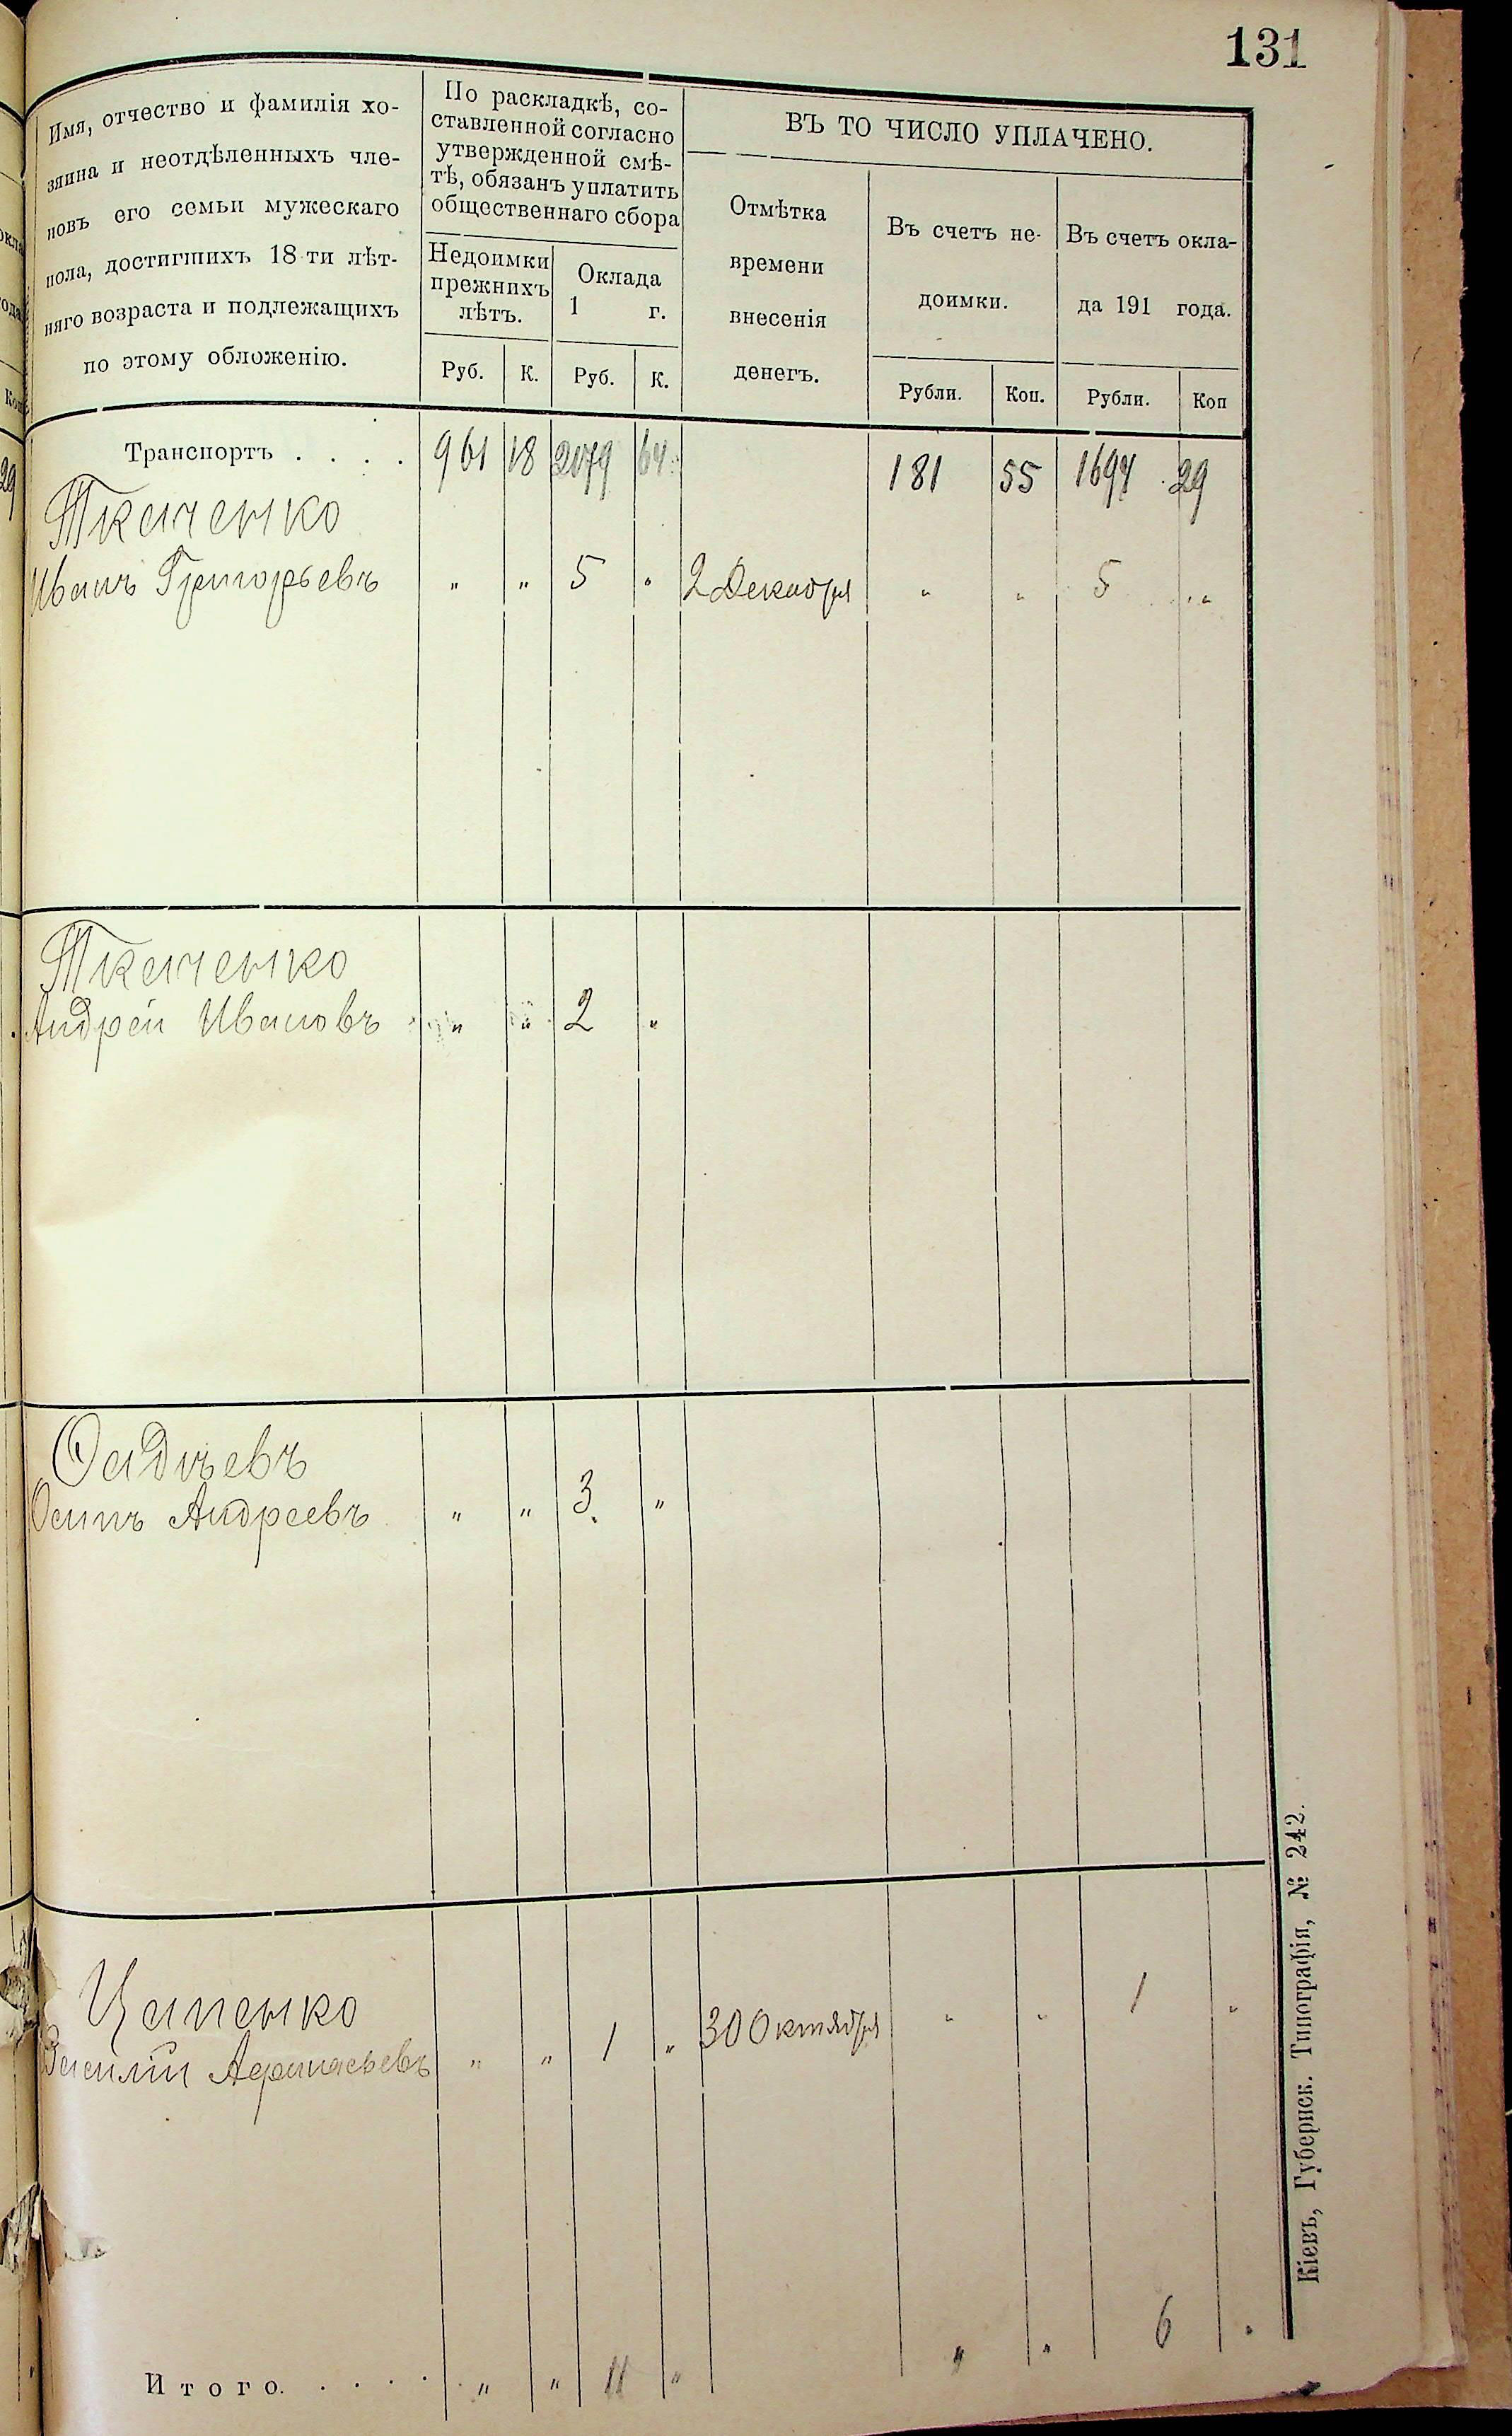 131
Имя, отчество и фамилія хо-
зяина и неотдѣленныхъ чле-
новъ его семьи мужескаго
пола, достигшихъ 18-ти лѣт-
няго возраста и подлежащихъ
по этому обложенію.
По раскладкѣ, со-
ставленной согласно
утвержденной смѣ-
тѣ, обязанъ уплатить
общественнаго сбора
Недоимки
прежнихъ
лѣтъ.
Оклада
1 г.
Руб. К. Руб. К.
ВЪ ТО ЧИСЛО УПЛАЧЕНО.
Отмѣтка
времени
внесенія
денегъ.
Въ счетъ не-
доимки.
Въ счетъ окла-
да 191 года.
Рубли. Коп. Рубли. Коп
Транспортъ . . . . 961 18 2079 64 181 55 1694 29
Ткаченко
Иванъ Григорьевъ " " 5 " 2 Декабря " " 5 "
Ткаченко
Андрей Ивановъ " " 2 "
Фадѣевъ
Осипъ Андреевъ " " 3 "
Цапенко
Василій Афанасьевъ " " 1 " 30 Октября " " 1 "
Итого. . . . . " " 11 " " " 6 "
Кіевъ, Губернск. Типографія, № 242.